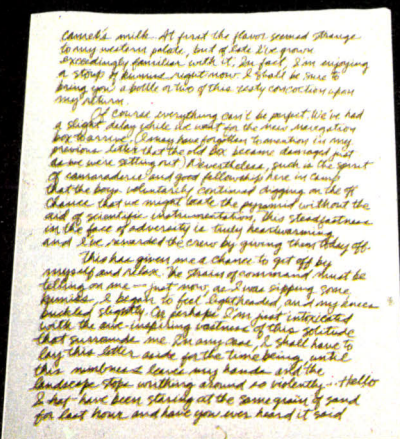 camel's milk. At first the flavor seemed strange
to my western palate, but of late I've grown
exceedingly familiar with it. In fact, I'm enjoying
a stoup of kumiss right now. I shall be sure to
bring you a bottle or two of this zesty concoction upon
my return.
Of course everything can't be perfect. We've had
a slight delay while we wait for the new navigation
box to arrive. (I may have forgotten to mention in my
previous letter that the old box became damaged just
as we were setting out.) Nevertheless, such is the spirit
of camaraderie and good fellowship here in camp
that the boys voluntarily continued digging on the off
chance that we might locate the pyramid without the
aid of scientific instrumentation. This steadfastness
in the face of adversity is truly heartwarming
and I've rewarded the crew by giving them today off.
This has given me a chance to get off by
myself and relax. The strain of command must be
telling on me -- just now, as I was sipping some
kumiss, I began to feel lightheaded, and my knees
buckled slightly. Or perhaps I'm just intoxicated
with the awe-inspiring vastness of this solitude
that surrounds me. In any case, I shall have to
lay this letter aside for the time being, until
this numbness leaves my hands and the
landscape stops writhing around so violently. Hello
I hat- have been staring at the same grain of sand
for last hour and have you ever heard it said